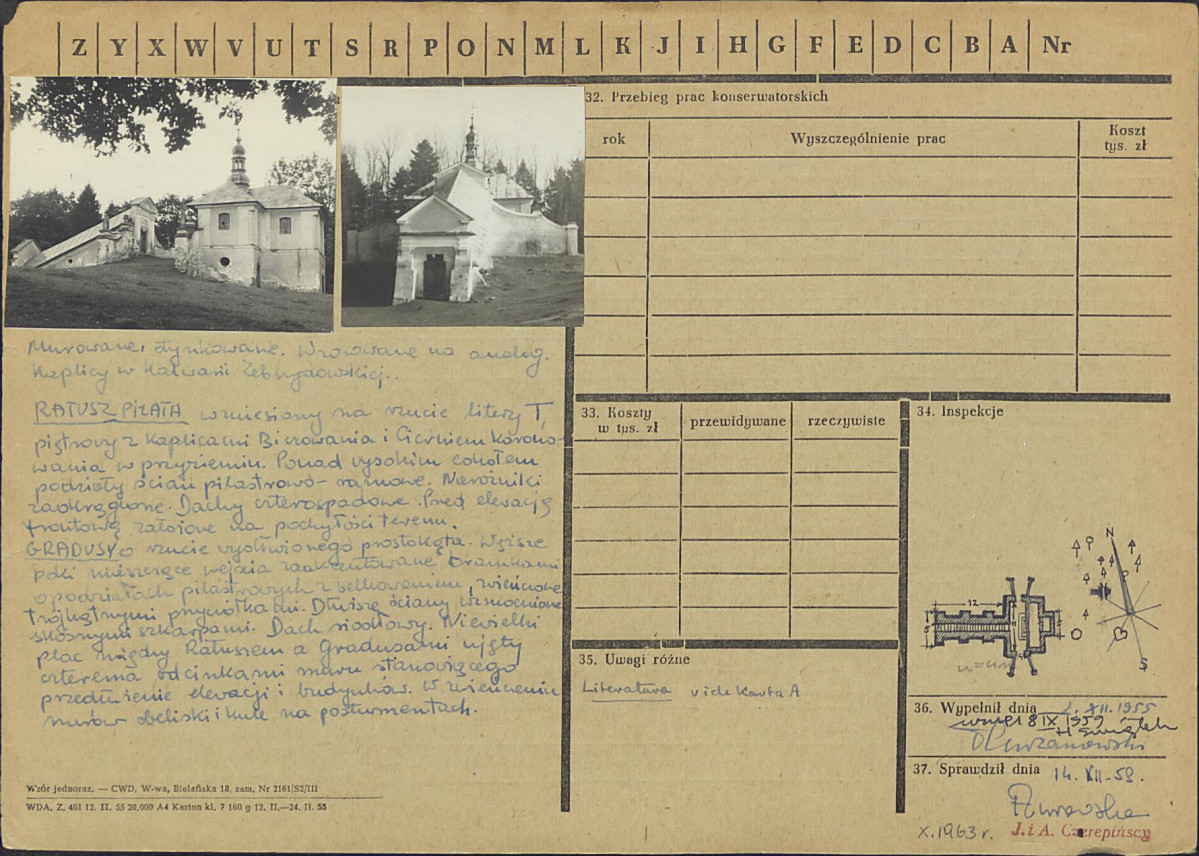 Z Y X W V U T S R P O N M L K J I H G F E D C B A Nr
32. Przebieg prac konserwatorskich
rok
Wyszczególnienie prac
Koszt
tys. zł
Murowane, tynkowane. Wzorowane na analog.
Kaplicy w Kalwarii Zebrzydowskiej.
RATUSZ PIŁATA wzniesiony na rzucie litery T,
piętrowy z Kaplicami Biczowania i Cierniem Korono-
wania w przyziemiu. Ponad wysokim cokołem
podziały ścian pilastrowo-ramowe. Narożniki
zaokrąglone. Dachy czterospadowe. Przed elewacją
frontową założone na pochyłości terenu.
GRADUSY o rzucie wydłużonego prostokąta. Węższe
boki mieszczące wejścia zaakcentowane bramkami
o podziałach pilastrowych z belkowaniem, zwieńczone
trójkątnymi przyczółkami. Dłuższe ściany wzmocnione
skośnymi szkarpami. Dach siodłowy. Niewielki
plac między Ratuszem a Gradusami ujęty
czterema odcinkami muru stanowiącego
przedłużenie elewacji budynków. W zwieńczeniu
murów obeliski i kule na postumentach.
33. Koszty
w tys. zł
przewidywane
rzeczywiste
34. Inspekcje
12
N
S
35. Uwagi różne
Literatura vide Karta A
36. Wypełnił dnia 2. XII. 1955
8 IX 1959
37. Sprawdził dnia 14. XII-59.
X. 1963 r. J. i A. Czerepińscy
Wzór jednoraz. — CWD, W-wa, Bielańska 18, zam. Nr 2161/S2/III
WDA. Z. 461 12. II. 55 20.000 A4 Karton kl. 7 160 g 12. II.—24. II. 55